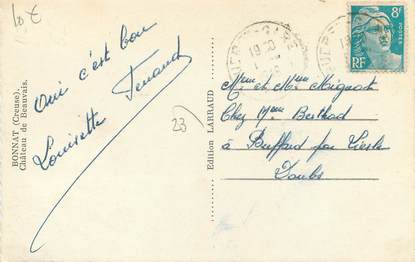 10€
Oui c'est bon
Louisette Fernand
BONNAT (Creuse).
Château de Beauvais.
23
Edition LARRAUD
GARE
19 30
8F
POSTES
RF
Mme et Mr Mignot
Chez Mme Berthod
à Buffard par Liesle
Doubs